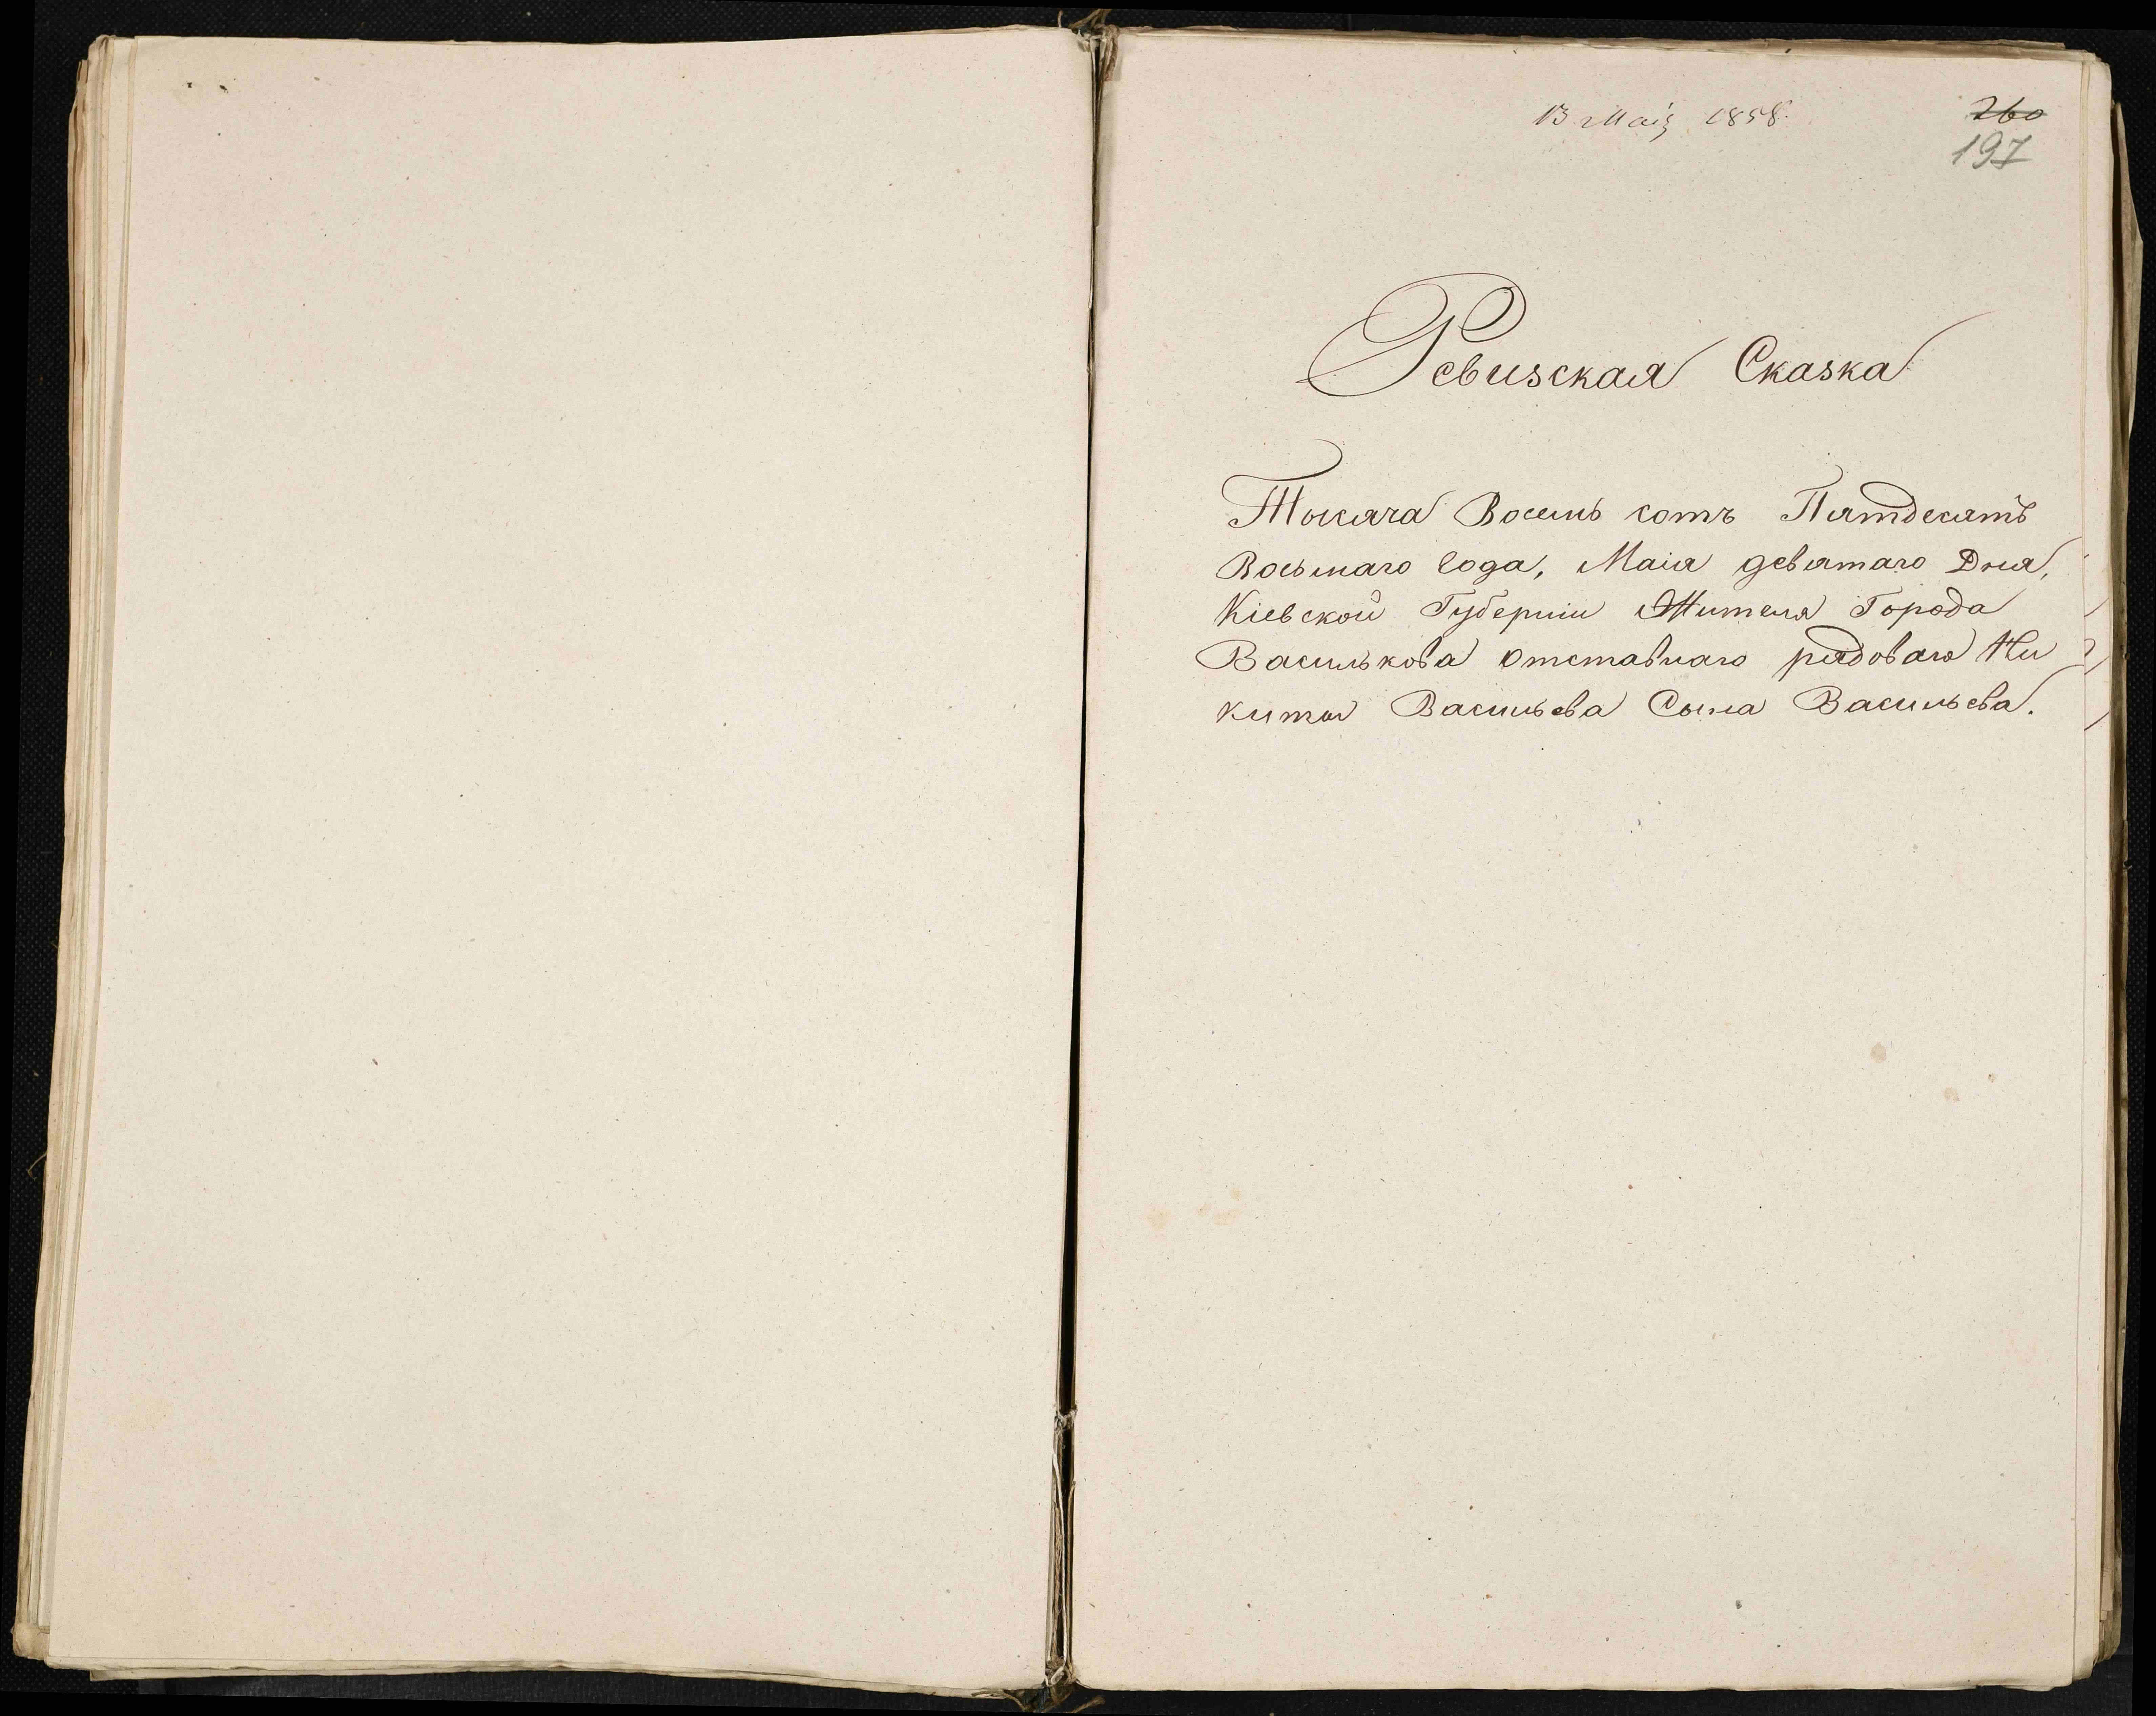 13 Маія 1858.
260
197
Ревизская Сказка
Тысяча Восемь сотъ Пятдесятъ
Восьмаго года, Маія девятаго Дня,
Кіевской Губерніи Жителя Города
Василькова отставнаго рядоваго Ни
киты Васильева Сына Васильева.